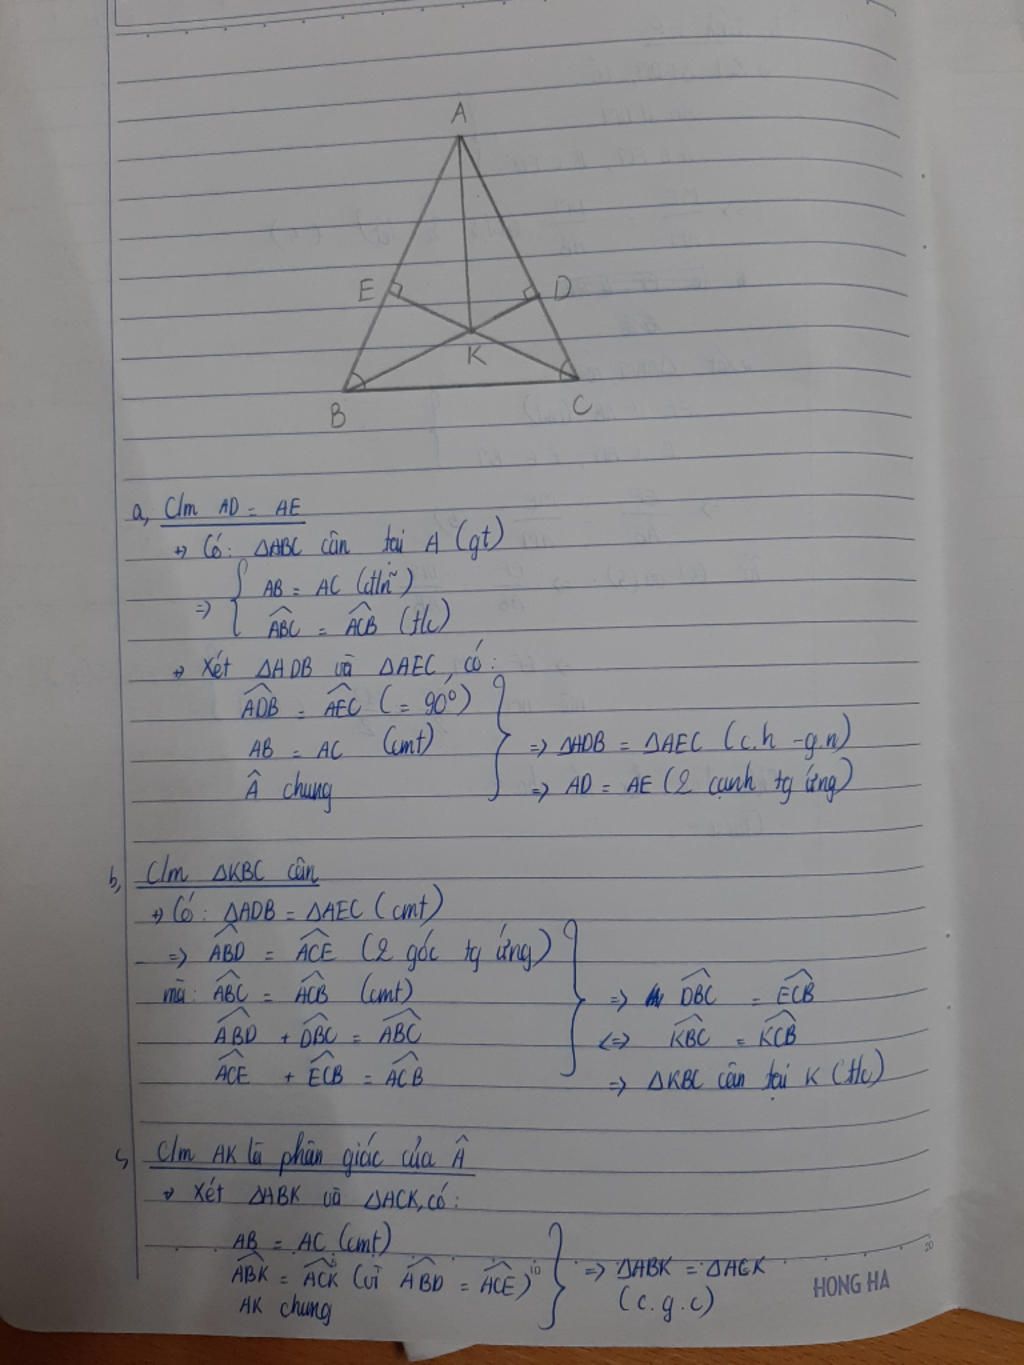 A
E
D
K
B
C
a, C/m AD = AE
→ Có: ΔABC cân tại A (gt)
=> { AB = AC (đ/n)
ABC = ACB (t/c)
→ Xét ΔADB và ΔAEC, có:
ADB = AEC ( = 90°)
AB = AC (cmt)
 chung
=> ΔADB = ΔAEC (c.h - g.n)
=> AD = AE (2 cạnh tg ứng)
b, C/m ΔKBC cân
→ Có: ΔADB = ΔAEC (cmt)
=> ABD = ACE (2 góc tg ứng)
mà: ABC = ACB (cmt)
ABD + DBC = ABC
ACE + ECB = ACB
=> DBC = ECB
<=> KBC = KCB
=> ΔKBC cân tại K (t/c)
c, C/m AK là phân giác của Â
→ Xét ΔABK và ΔACK, có:
AB = AC (cmt)
ABK = ACK (vì ABD = ACE)
AK chung
=> ΔABK = ΔACK
(c.g.c)
10
20
HONG HA